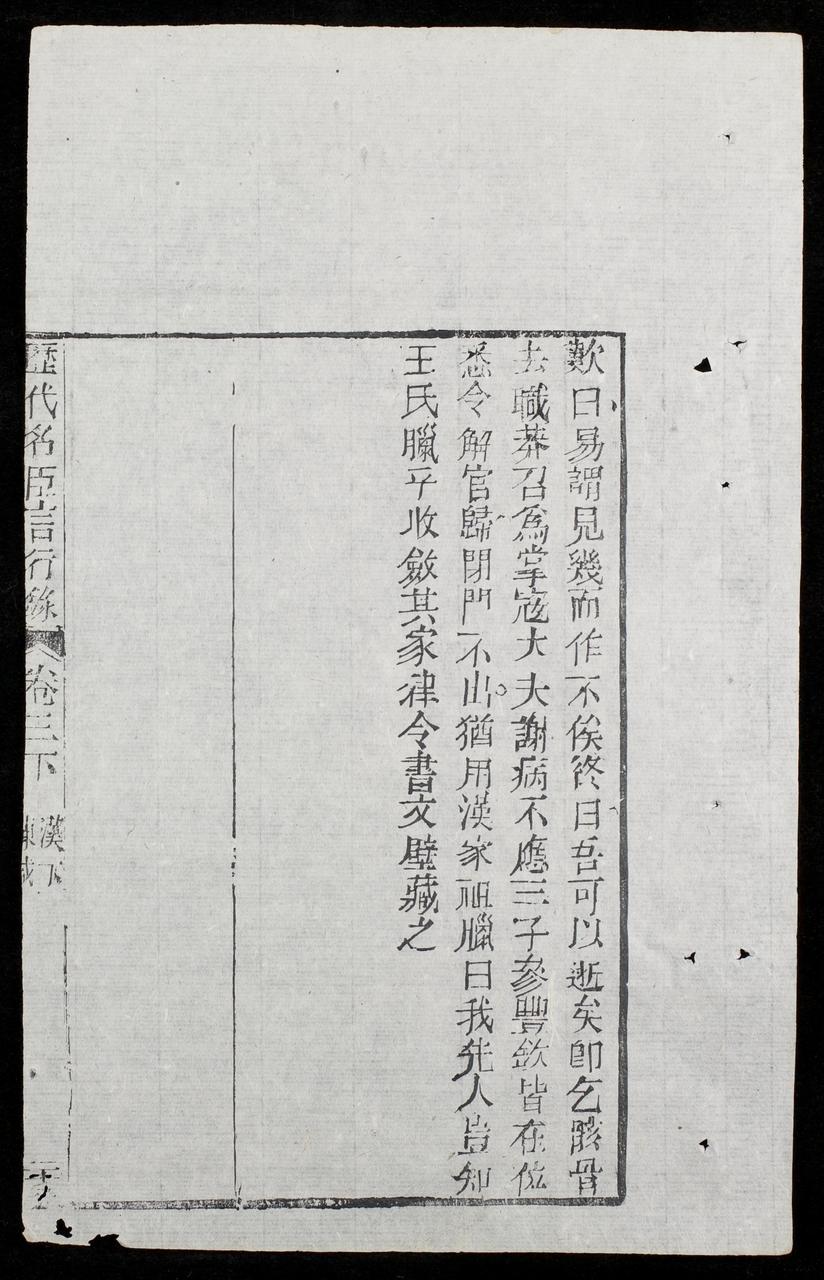 歎曰易謂見幾而作不俟終日吾可以逝矣卽乞骸骨
去職莽召爲掌寇大夫謝病不應三子參豐欽皆在位
悉令解官歸閉門不出猶用漢家祖臘曰我先人豈知
王氏臘乎收斂其家律令書文壁藏之
歷代名臣言行錄
卷三下
漢下
陳咸